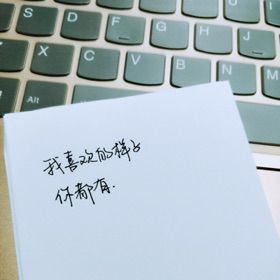 S D F G H J K
Z X C V B N M
Alt
我喜欢的样子
你都有.